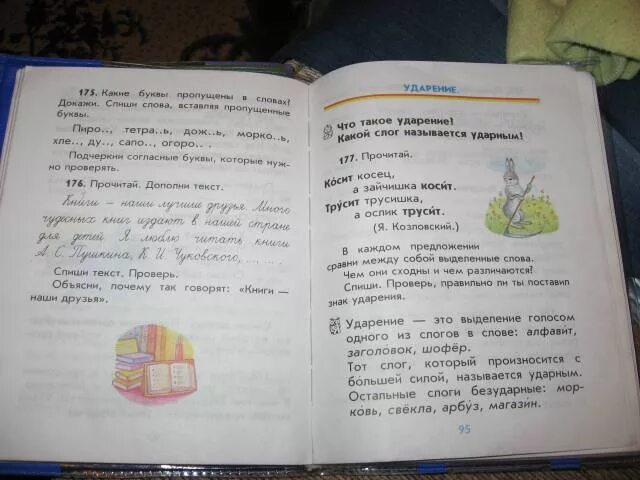 175. Какие буквы пропущены в словах?
Докажи. Спиши слова, вставляя пропущенные
буквы.
Пиро.., тетра..ь, дож..ь, морко..ь,
хле.., ду.., сапо.., огоро.. .
Подчеркни согласные буквы, которые нуж-
но проверять.
176. Прочитай. Дополни текст.
Книги — наши лучшие друзья. Много
чудесных книг издают в нашей стране
для детей. Я люблю читать книги
А. С. Пушкина, К. И. Чуковского, ... ... .
Спиши текст. Проверь.
Объясни, почему так говорят: «Книги —
наши друзья».
УДАРЕНИЕ
Что такое ударение?
Какой слог называется ударным?
177. Прочитай.
Ко́сит косец,
а зайчишка коси́т.
Тру́сит трусишка,
а ослик труси́т.
(Я. Козловский.)
В каждом предложении
сравни между собой выделенные слова.
Чем они сходны и чем различаются?
Спиши. Проверь, правильно ли ты поставил
знак ударения.
Ударение — это выделение голосом
одного из слогов в слове: алфави́т,
заголо́вок, шофёр.
Тот слог, который произносится с
бо́льшей силой, называется ударным.
Остальные слоги безударные: мор-
ко́вь, свёкла, арбу́з, магази́н.
95